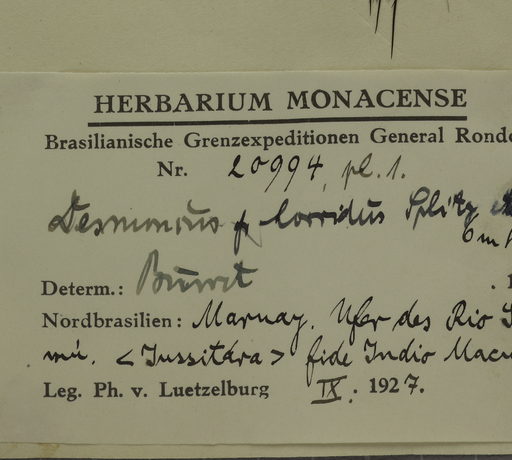 HERBARIUM MONACENSE
Brasilianische Grenzexpeditionen General Rondo
Nr. 20994, pl. 1.
Desmoncus horridus Splitg
Determ.: Burret
Nordbrasilien: Marnay. Ufer des Rio S
mú. <Jussitára> fide Indio Macu
Leg. Ph. v. Luetzelburg IX. 1927.